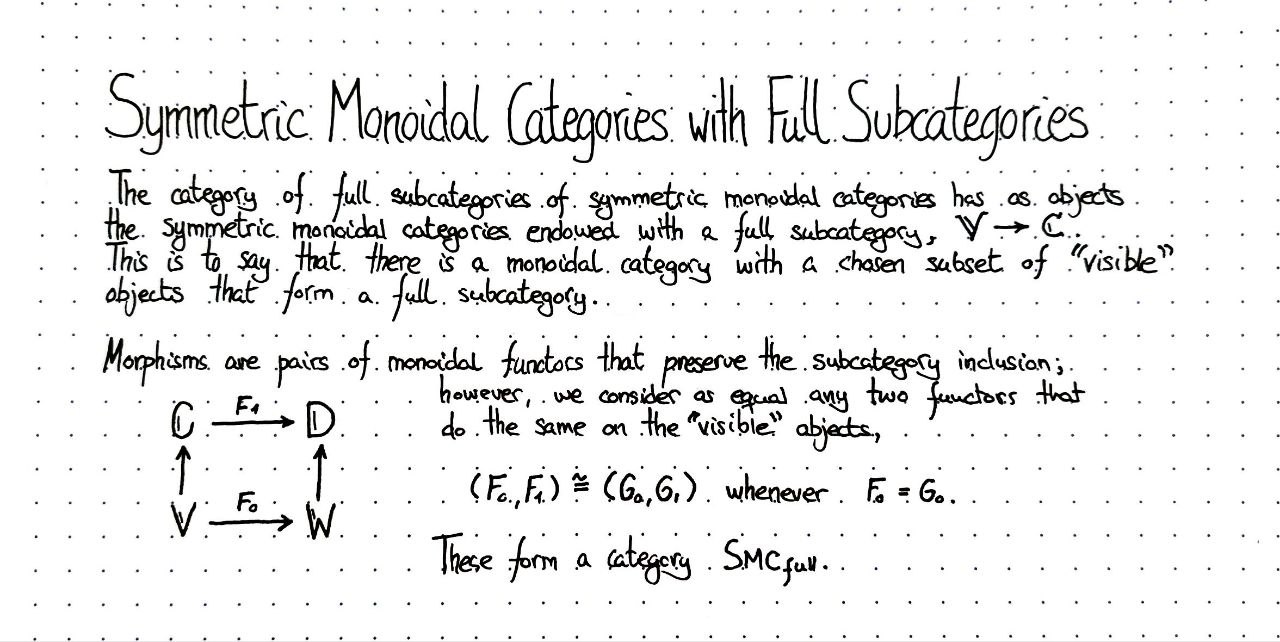 Symmetric Monoidal Categories with Full Subcategories
The category of full subcategories of symmetric monoidal categories has as objects
the symmetric monoidal categories endowed with a full subcategory, 𝕍 → ℂ.
This is to say that there is a monoidal category with a chosen subset of "visible"
objects that form a full subcategory.
Morphisms are pairs of monoidal functors that preserve the subcategory inclusion;
however, we consider as equal any two functors that
do the same on the "visible" objects,
ℂ F₁ → 𝔻
↑ ↑
𝕍 F₀ → 𝕎
(F₀, F₁) ≅ (G₀, G₁) whenever F₀ = G₀.
These form a category SMC_full.